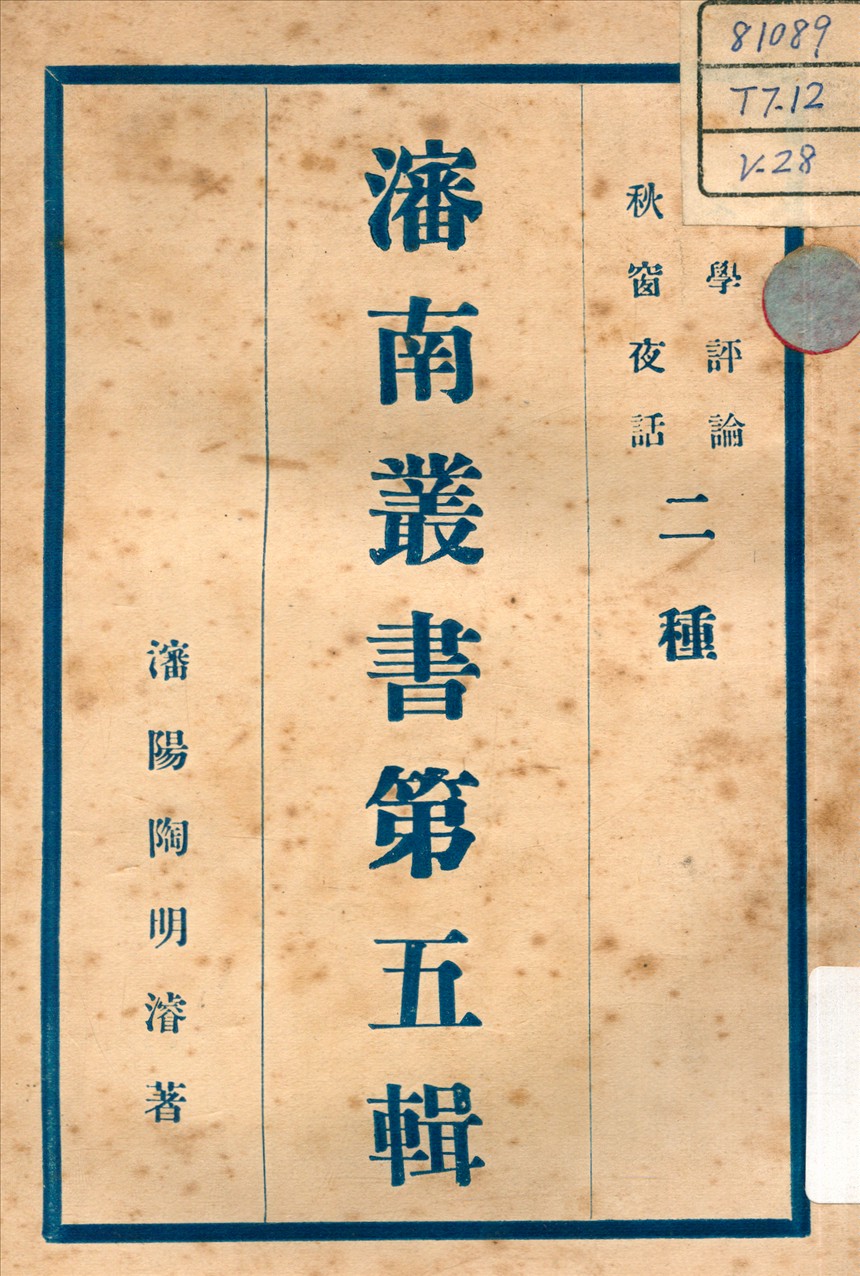 81089
T7.12
V.28
學評論
秋窗夜話
二種
瀋南叢書第五輯
瀋陽陶明濬著